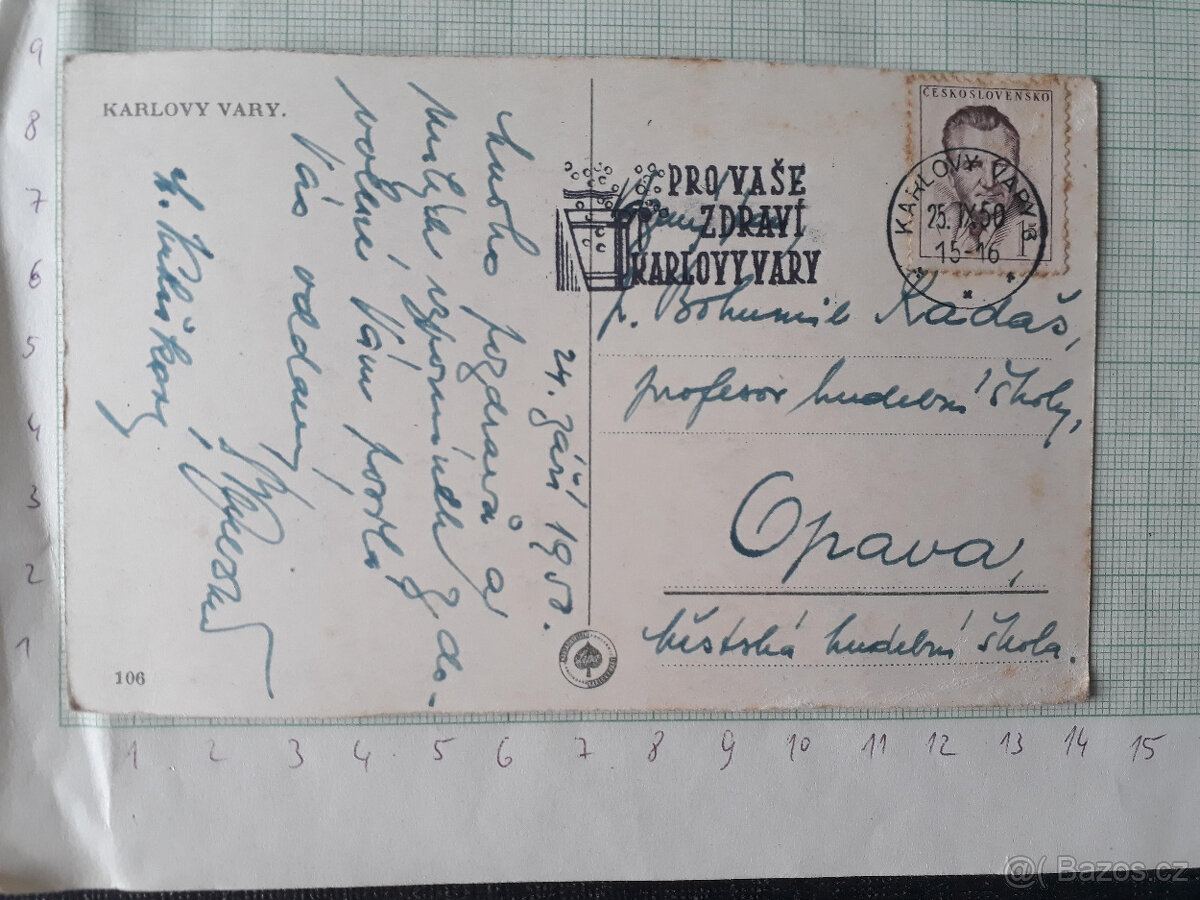 KARLOVY VARY.
24. září 1950.
Mnoho pozdravů a
milých vzpomínek z do-
volené Vám posílá
Vás oddaný
106
PRO VAŠE
ZDRAVÍ
KARLOVY VARY
ČESKOSLOVENSKO
1
KARLOVY VARY
25.IX.50
15-16
p. Bohumil Kadaš,
profesor hudební školy,
Opava,
Městská hudební škola.
9
8
7
6
5
4
3
2
1
1 2 3 4 5 6 7 8 9 10 11 12 13 14 15
Bazos.cz